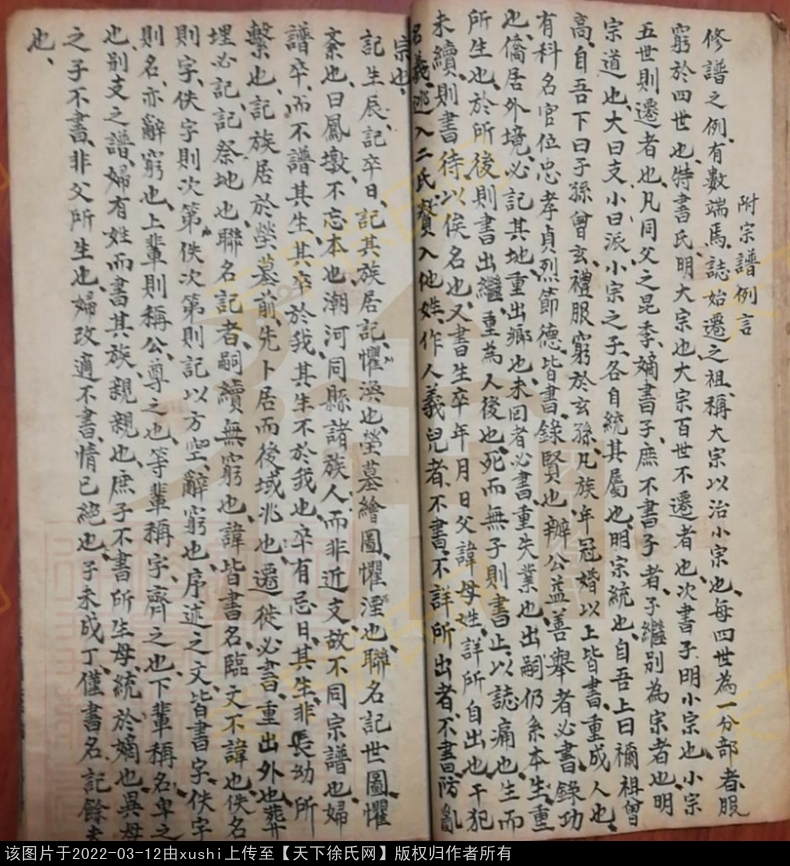 附宗譜例言
修譜之例、有數端焉、誌始遷之祖、稱大宗以治小宗也、每四世為一分部者、服
窮於四世也、特書氏明大宗也、大宗百世不遷者也、次書子明小宗也、小宗
五世則遷者也、凡同父之昆季、嫡書子、庶不書子者、子繼別為宗者也、明
宗道也、大曰支、小曰派、小宗之子、各自統其屬也、明宗統也、自吾上曰禰祖曾
高、自吾下曰子孫曾玄、禮服窮於玄孫、凡族年冠婚以上皆書、重成人也、
有科名官位忠孝貞烈節德、皆書、錄賢也、辦公益善舉者必書、錄功
也、僑居外境、必記其地、重出鄉也、未回者必書、重失業也、出嗣仍系本生、重
所生也、於所後則書出繼、重為人後也、死而無子則書止、以誌痛也、生而
未續、則書待、以俟名也、又書生卒年月日父諱母姓、詳所自出也、干犯
名義、逃入二氏、賣入他姓、作人義兒者、不書、不詳所出者、不書、防亂
宗也、
記生辰、記卒日、記其族居、記懼渙也、塋墓繪圖、懼湮也、聯名記世圖、懼
紊也、曰鳳墩、不忘本也、潮河同縣諸族人、而非近支、故不同宗譜也、婦
譜卒、而不譜其生、其卒於我、其生不於我也、卒有忌日、其生、非長幼所
繫也、記族居於塋墓前、先卜居而後域兆也、遷徙必書、重出外也、葬
埋必記、記祭地也、聯名記者、嗣續無窮也、諱皆書名、臨文不諱也、佚名
則字、佚字則次第、佚次第則記以方空、辭窮也、序述之文、皆書字、佚字
則名、亦辭窮也、上輩則稱公、尊之也、等輩稱字、齊之也、下輩稱名、卑之
也、別支之譜、婦有姓而書其族、親親也、庶子不書所生母、統於嫡也、異母
之子不書、非父所生也、婦改適不書、情已絕也、子未成丁、僅書名、記餘夫
也、
该图片于2022-03-12由xushi上传至【天下徐氏网】版权归作者所有